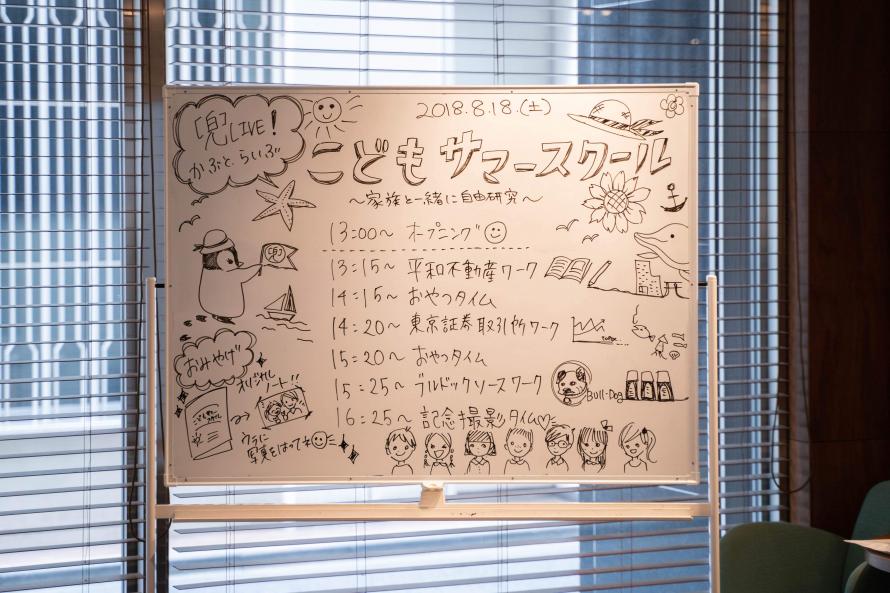 2018.8.18.(土)
兜LIVE!
かぶと らいぶ
こどもサマースクール
〜家族と一緒に自由研究〜
13:00〜 オープニング
13:15〜 平和不動産ワーク
14:15〜 おやつタイム
14:20〜 東京証券取引所ワーク
15:20〜 おやつタイム
15:25〜 ブルドックソースワーク
Bull-Dog
16:25〜 記念撮影タイム♡
兜
おみやげ
オリジナル
ノート!!
ウラに
写真をはっても